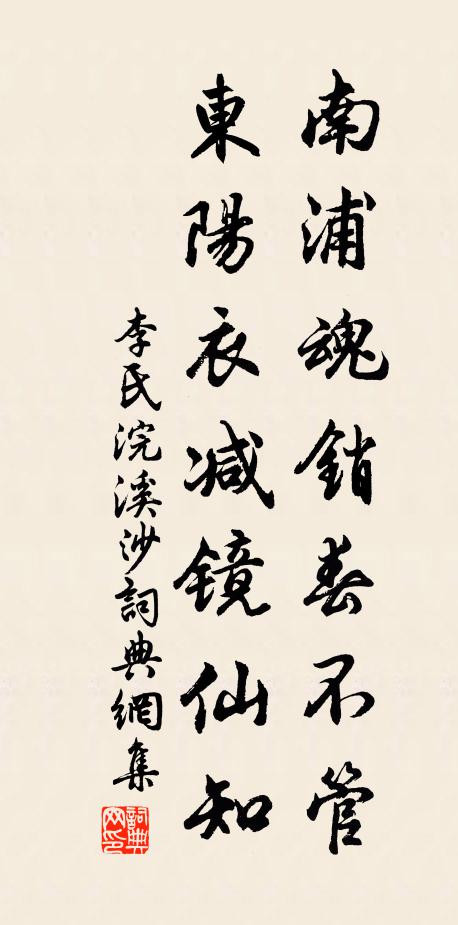 南浦魂銷春不管
東陽衣減鏡仙知
李氏浣溪沙詞典網集
詞典网印